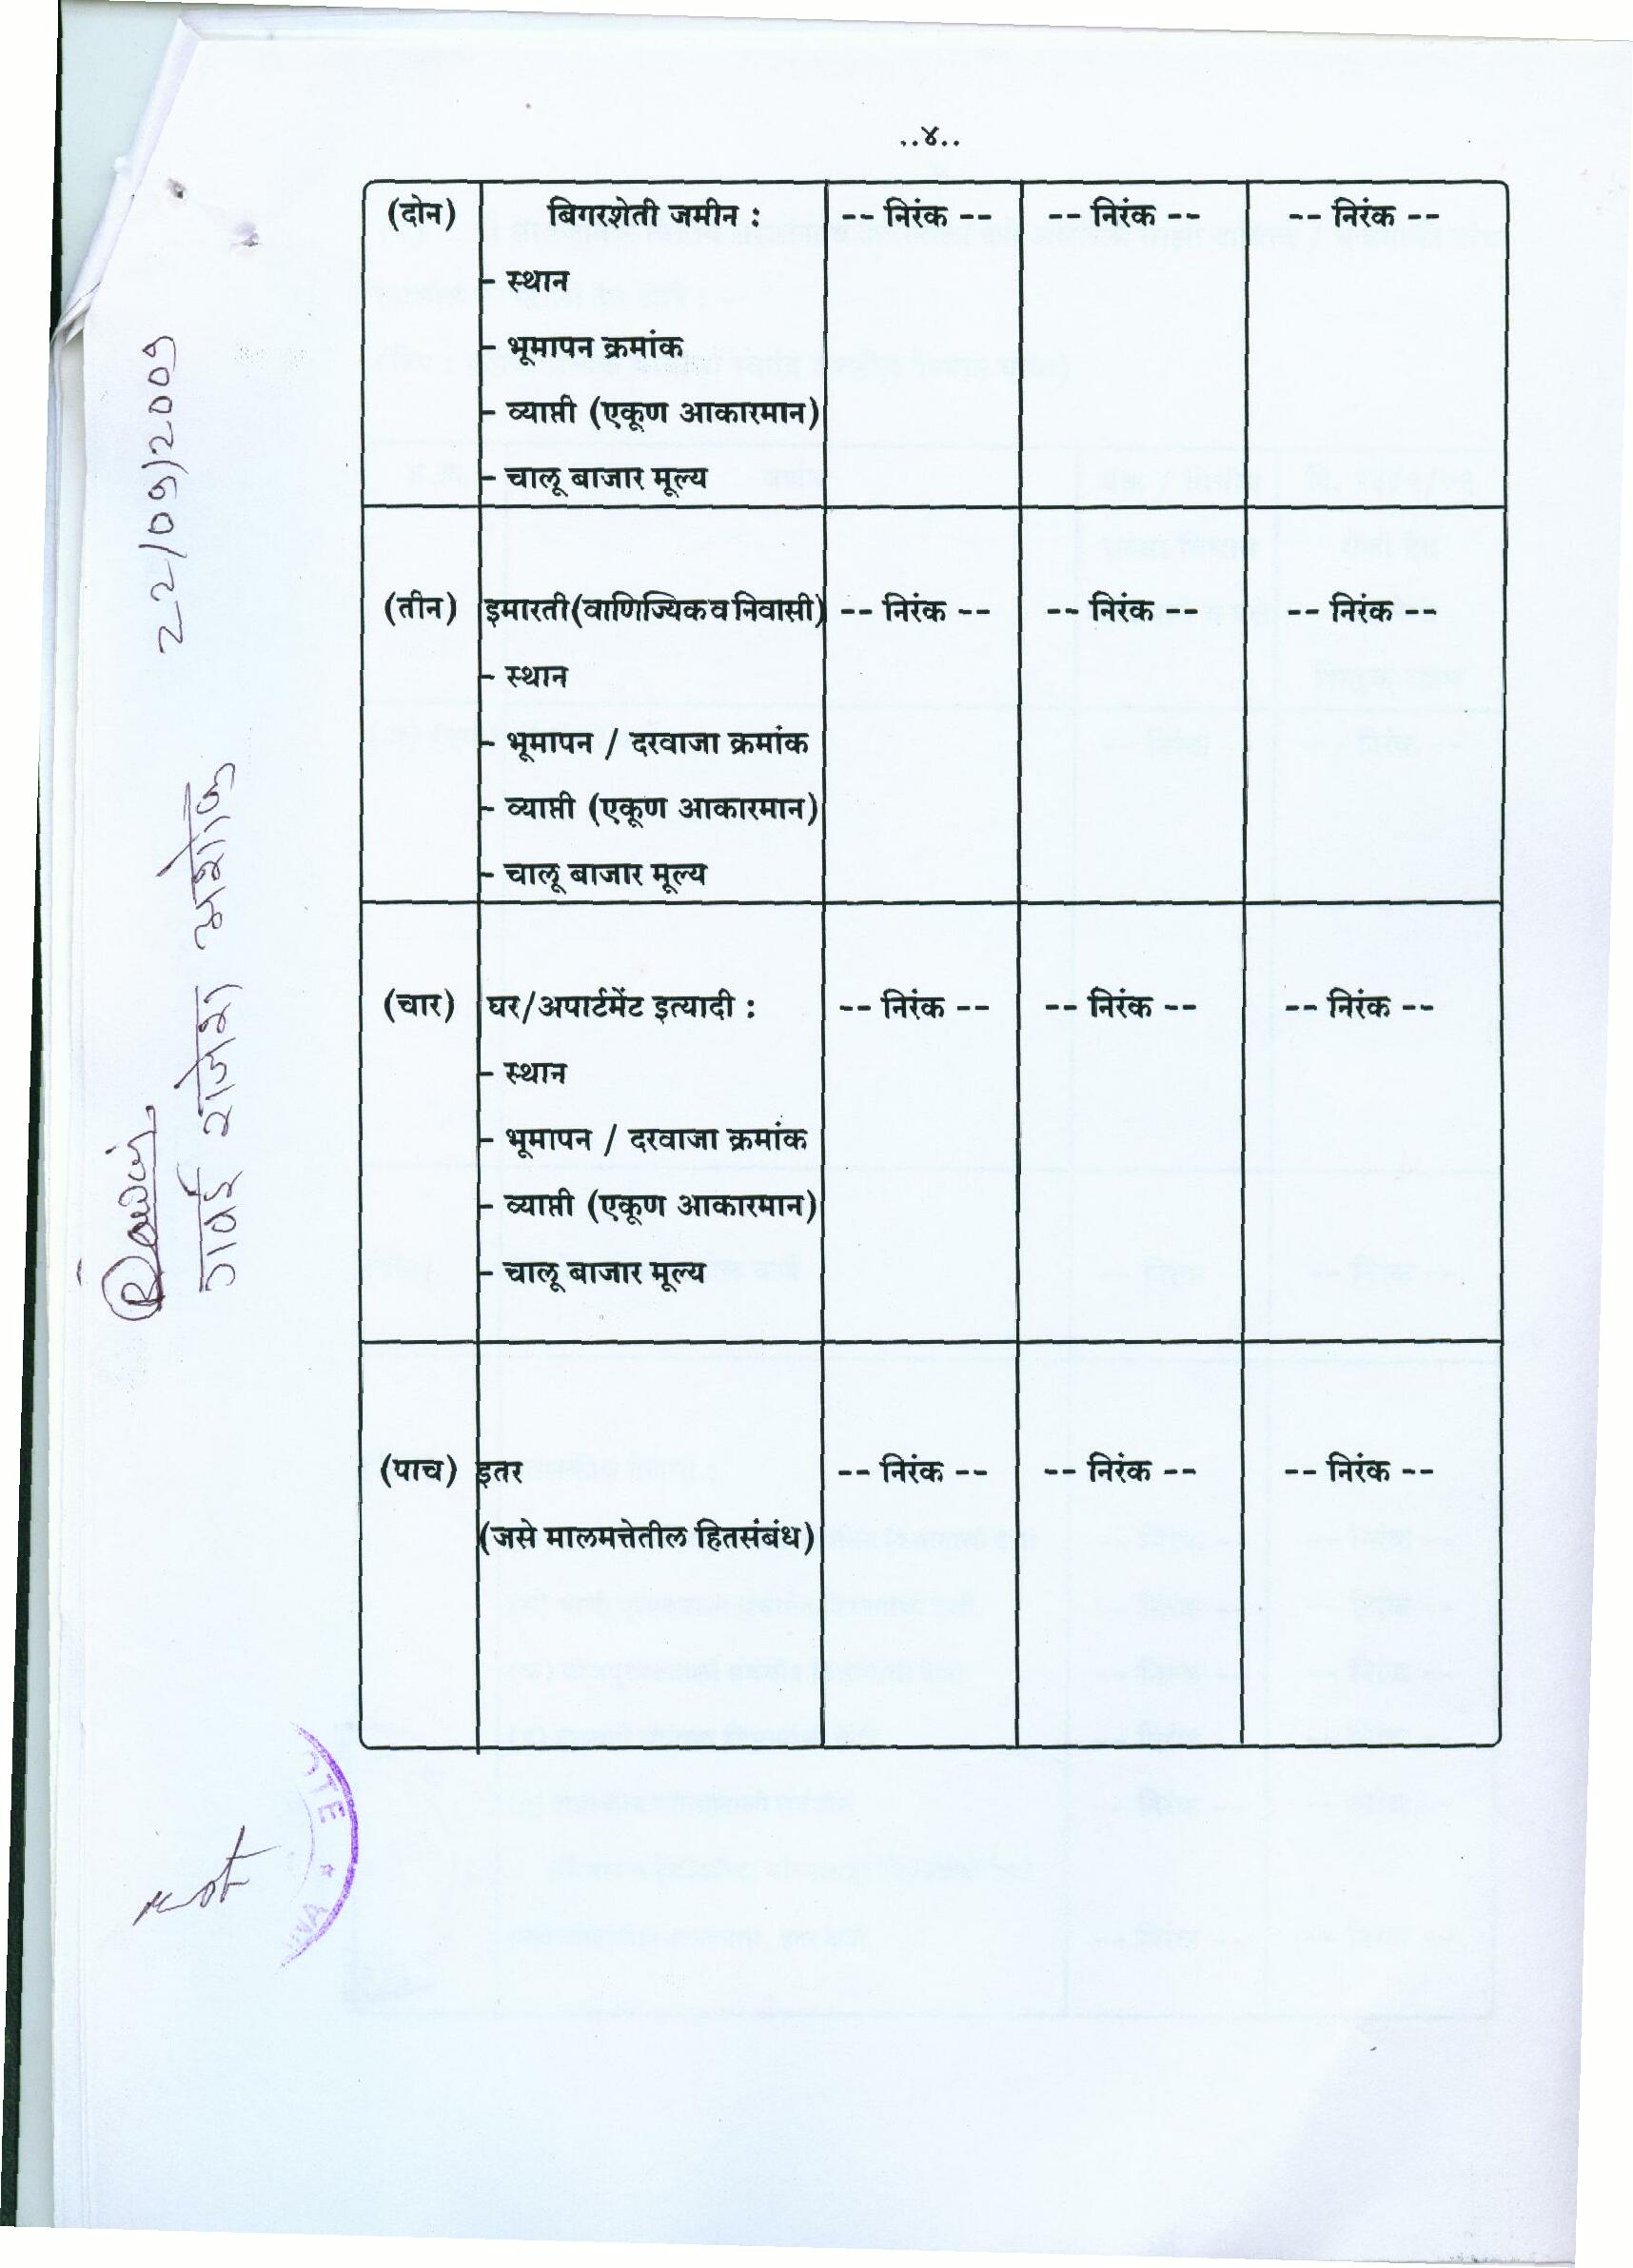 ..४..
(दोन) बिगरशेती जमीन : -- निरंक -- -- निरंक -- -- निरंक --
- स्थान
- भूमापन क्रमांक
- व्याप्ती (एकूण आकारमान)
- चालू बाजार मूल्य
(तीन) इमारती(वाणिज्यिक व निवासी) -- निरंक -- -- निरंक -- -- निरंक --
- स्थान
- भूमापन / दरवाजा क्रमांक
- व्याप्ती (एकूण आकारमान)
- चालू बाजार मूल्य
(चार) घर/अपार्टमेंट इत्यादी : -- निरंक -- -- निरंक -- -- निरंक --
- स्थान
- भूमापन / दरवाजा क्रमांक
- व्याप्ती (एकूण आकारमान)
- चालू बाजार मूल्य
(पाच) इतर -- निरंक -- -- निरंक -- -- निरंक --
(जसे मालमत्तेतील हितसंबंध)
22/09/2009
गवई राजेश अशोक